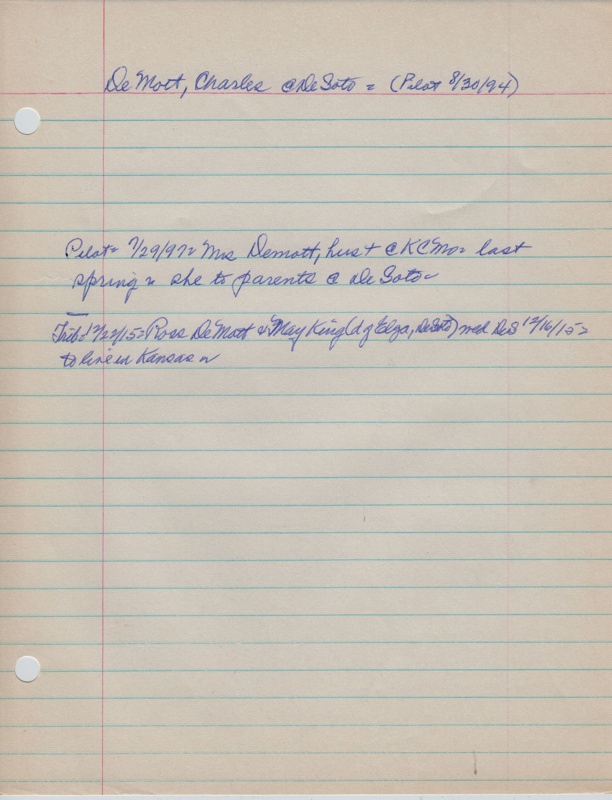 DeMott, Charles @ DeSoto = (Pilot 8/30/94)
Pilot = 7/29/97 = Mrs Demott, hus + @ KCMo = last
spring = she to parents @ DeSoto =
Trib = 12/22/15 = Ross DeMott & May King (dg Elza, DeSoto) med DeS 12/16/15 =
to live in Kansas =